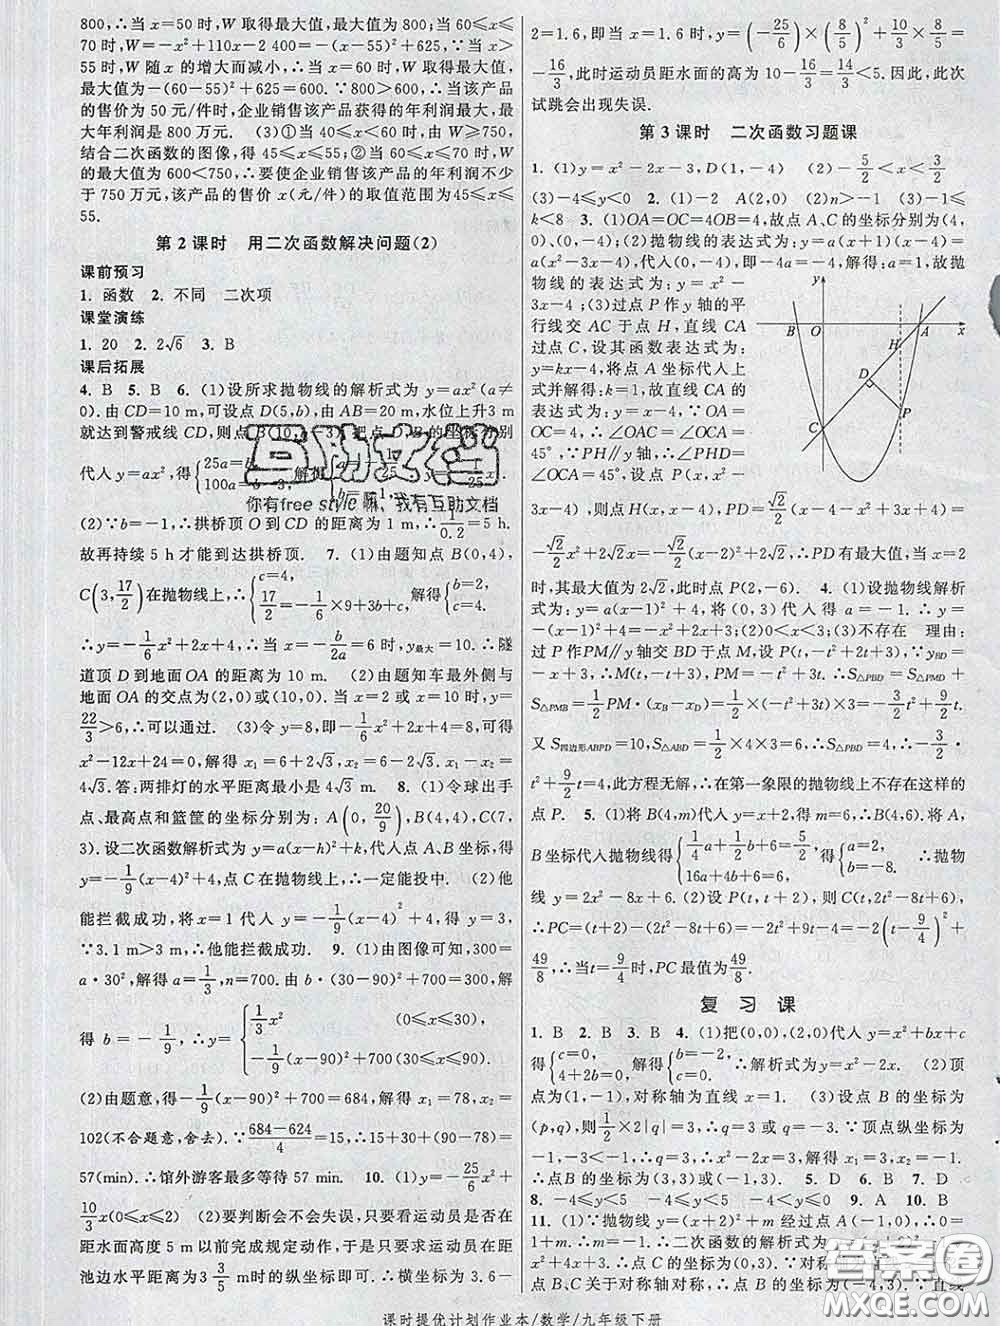 800,∴当 x=50 时,W 取得最大值,最大值为 800;当 60≤x≤
70 时,W=-x²+110x-2 400=-(x-55)²+625,∵当 x>
55 时,W 随 x 的增大而减小,∴当 x=60 时,W 取得最大值,
最大值为-(60-55)²+625=600.∵800>600,∴当该产品
的售价为 50 元/件时,企业销售该产品获得的年利润最大,最
大年利润是 800 万元. (3)①当 40≤x≤60 时,由 W≥750,
结合二次函数的图像,得 45≤x≤55;②当 60≤x≤70 时,W
的最大值为 600<750,∴要使企业销售该产品的年利润不少
于 750 万元,该产品的售价 x(元/件)的取值范围为45≤x≤
55.
第 2 课时 用二次函数解决问题(2)
课前预习
1. 函数 2. 不同 二次项
课堂演练
1. 20 2. 2√6 3. B
课后拓展
4. B 5. B 6. (1)设所求抛物线的解析式为 y=ax²(a≠
0).由 CD=10 m,可设点 D(5,b),由 AB=20 m,水位上升3 m
就达到警戒线 CD,则点 B(10,b-3),把点
代人 y=ax²,得{25a=b, 100a=b-3,解得
互助文档
你有free style嘛、我有互助文档
(2)∵b=-1,∴拱桥顶 O 到 CD 的距离为 1 m,∴1/0.2=5 h.
故再持续 5 h 才能到达拱桥顶. 7. (1)由题知点 B(0,4),
C(3,17/2)在抛物线上,∴{c=4, 17/2=-1/6×9+3b+c, 解得{b=2, c=4.
∴y=-1/6x²+2x+4,∴当 x=-b/2a=6 时,y最大=10.∴隧
道顶 D 到地面 OA 的距离为 10 m. (2)由题知车最外侧与
地面 OA 的交点为(2,0)或(10,0). 当 x=2 或 x=10 时,y=
22/3>6,∴可以通过. (3)令 y=8,即-1/6x²+2x+4=8,可得
x²-12x+24=0,解得 x₁=6+2√3,x₂=6-2√3.则 x₁-x₂=
4√3.答:两排灯的水平距离最小是 4√3 m. 8. (1)令球出手
点、最高点和篮筐的坐标分别为:A(0,20/9),B(4,4),C(7,
3).设二次函数解析式为 y=a(x-h)²+k,代人点 A、B 坐标,得
y=-1/9(x-4)²+4,点 C 在抛物线上,∴一定能投中. (2)他
能拦截成功,将 x=1 代人 y=-1/9(x-4)²+4,得 y=3.
∵3.1 m>3 m,∴他能拦截成功. 9. (1)由图像可知,300=
a·30²,解得 a=1/3,n=700.由 b·(30-90)²+700=300,解
得 b=-1/9,∴y={1/3x² (0≤x≤30), -1/9(x-90)²+700 (30≤x≤90).
(2)由题意,得-1/9(x-90)²+700=684,解得 x₁=78,x₂=
102(不合题意,舍去).∵(684-624)/4=15,∴15+30+(90-78)=
57(min).∴馆外游客最多等待 57 min. 10. (1)y=-25/6x²+
10/3x(0≤x≤2) (2)要判断会不会失误,只要看运动员是否在
距水面高度 5 m 以前完成规定动作,于是只要求运动员在距
池边水平距离为3 3/5 m时的纵坐标即可.∴横坐标为 3.6-
2=1.6,即当 x=1.6 时,y=(-25/6)×(8/5)²+10/3×8/5=
-16/3,此时运动员距水面的高为 10-16/3=14/3<5.因此,此次
试跳会出现失误.
第 3 课时 二次函数习题课
1. (1)y=x²-2x-3,D(1,-4) (2)-5/2<x<3/2
(3)-4≤y<0 2. (1)-2 A(2,0) (2)n>-1 (3)-1≤
k<8 3. (1)OA=OC=4OB=4,故点 A、C 的坐标分别为(4,
0)、(0,-4); (2)抛物线的表达式为:y=a(x+1)(x-4)=
a(x²-3x-4),代人(0,-4),即-4a=-4,解得:a=1,故抛
物线的表达式为:y=x²-
3x-4;(3)过点 P 作 y 轴的平
行线交 AC 于点 H,直线 CA
过点 C,设其函数表达式为:
y=kx-4,将点 A 坐标代人上
式并解得:k=1,故直线 CA 的
表达式为:y=x-4,∵OA=
OC=4,∴∠OAC=∠OCA=
45°,∵PH∥y 轴,∴∠PHD=
∠OCA=45°,设点 P(x,x²-
3x-4),则点 H(x,x-4),PD=√2/2
时,其最大值为 2√2,此时点 P(2,-6). 4. (1)设抛物线解析
式为:y=a(x-1)²+4,将(0,3)代入得 a=-1.∴y=
-(x-1)²+4=-x²+2x+3;(2)0<x<3;(3)不存在 理由:
过 P 作PM∥y 轴交 BD 于点 M,设 P(t,-t²+2t+3),∵yBD=
-x+3,∴M(t,-t+3),PM=-t²+3t,∴S△PBD=S△PMD+
S△PMB=1/2PM·(xB-xD)=1/2×(-t²+3t)×3=-3/2t²+9/2t.
又 S四边形ABPD=10,S△ABD=1/2×4×3=6,∴S△PBD=4,∴-3/2·
t²+9/2t=4,此方程无解,∴在第一象限的抛物线上不存在这样的
点 P. 5. (1)将 B(4,m)代人 y=x+2,得 m=6,∴B(4,6).将 A、
B 坐标代人抛物线得{1/4a+1/2b+6=5/2, 16a+4b+6=6, 得{a=2, b=-8. ∴抛物
线 y=2x²-8x+6; (2)设 P(t,t+2),∴C(t,2t²-8t+6),
∴PC=(t+2)-(2t²-8t+6)=-2t²+9t-4=-2(t-9/4)²+
49/8,∴当t=9/4时,PC最值为49/8.
复 习 课
1. B 2. B 3. B 4. (1)把(0,0),(2,0)代人 y=x²+bx+c
得{c=0, 4+2b=0, 解得{b=-2, c=0. ∴解析式为 y=x²-2x. (2)顶
点为(1,-1),对称轴为直线 x=1. (3)设点 B 的坐标为
(p,q),则1/2×2|q|=3,q=3 或 q=-3.∵顶点纵坐标为
-1,-3<-1,∴q=3.∴x²-2x=3. 解得 x₁=3,x₂=-1.
∴点B的坐标为(3,3)或(-1,3). 5. D 6. B 7. D
8. -4≤y≤5 -4≤y≤5 9. A 10. B
11. (1)∵抛物线 y=(x+2)²+m 经过点 A(-1,0),∴0=
1+m,∴m=-1,∴二次函数的解析式为 y=(x+2)²-1=
x²+4x+3,∴
点 B、C 关于对称轴对称,∴点 B 的坐标为(-4,3).∵直线
y
B
O
A
x
H
D
P
C
答案圈
课时提优计划作业本/数学/九年级下册